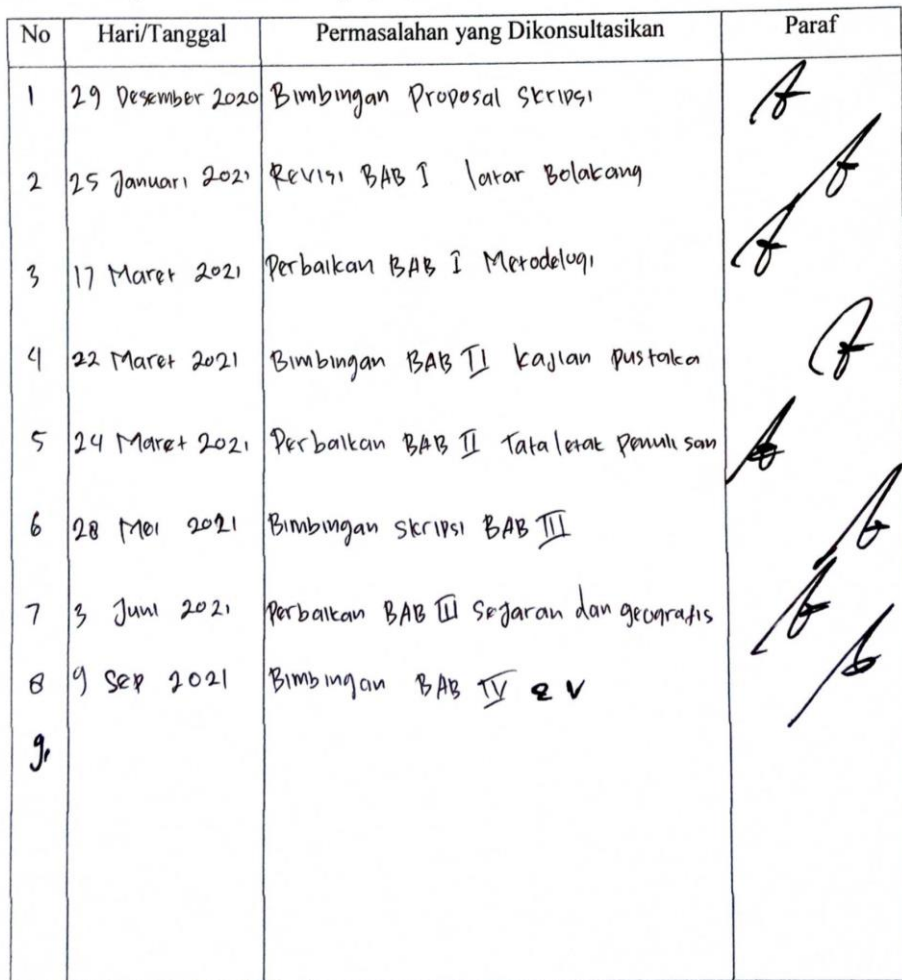 No Hari/Tanggal Permasalahan yang Dikonsultasikan Paraf
1 29 Desember 2020 Bimbingan Proposal Skripsi
2 25 Januari 2021 Revisi BAB I latar Belakang
3 17 Maret 2021 Perbaikan BAB I Metodelogi
4 22 Maret 2021 Bimbingan BAB II kajian pustaka
5 24 Maret 2021 Perbaikan BAB II Tata letak Penulisan
6 28 Mei 2021 Bimbingan skripsi BAB III
7 3 Juni 2021 Perbaikan BAB III Sejarah dan geografis
8 9 Sep 2021 Bimbingan BAB IV & V
9.